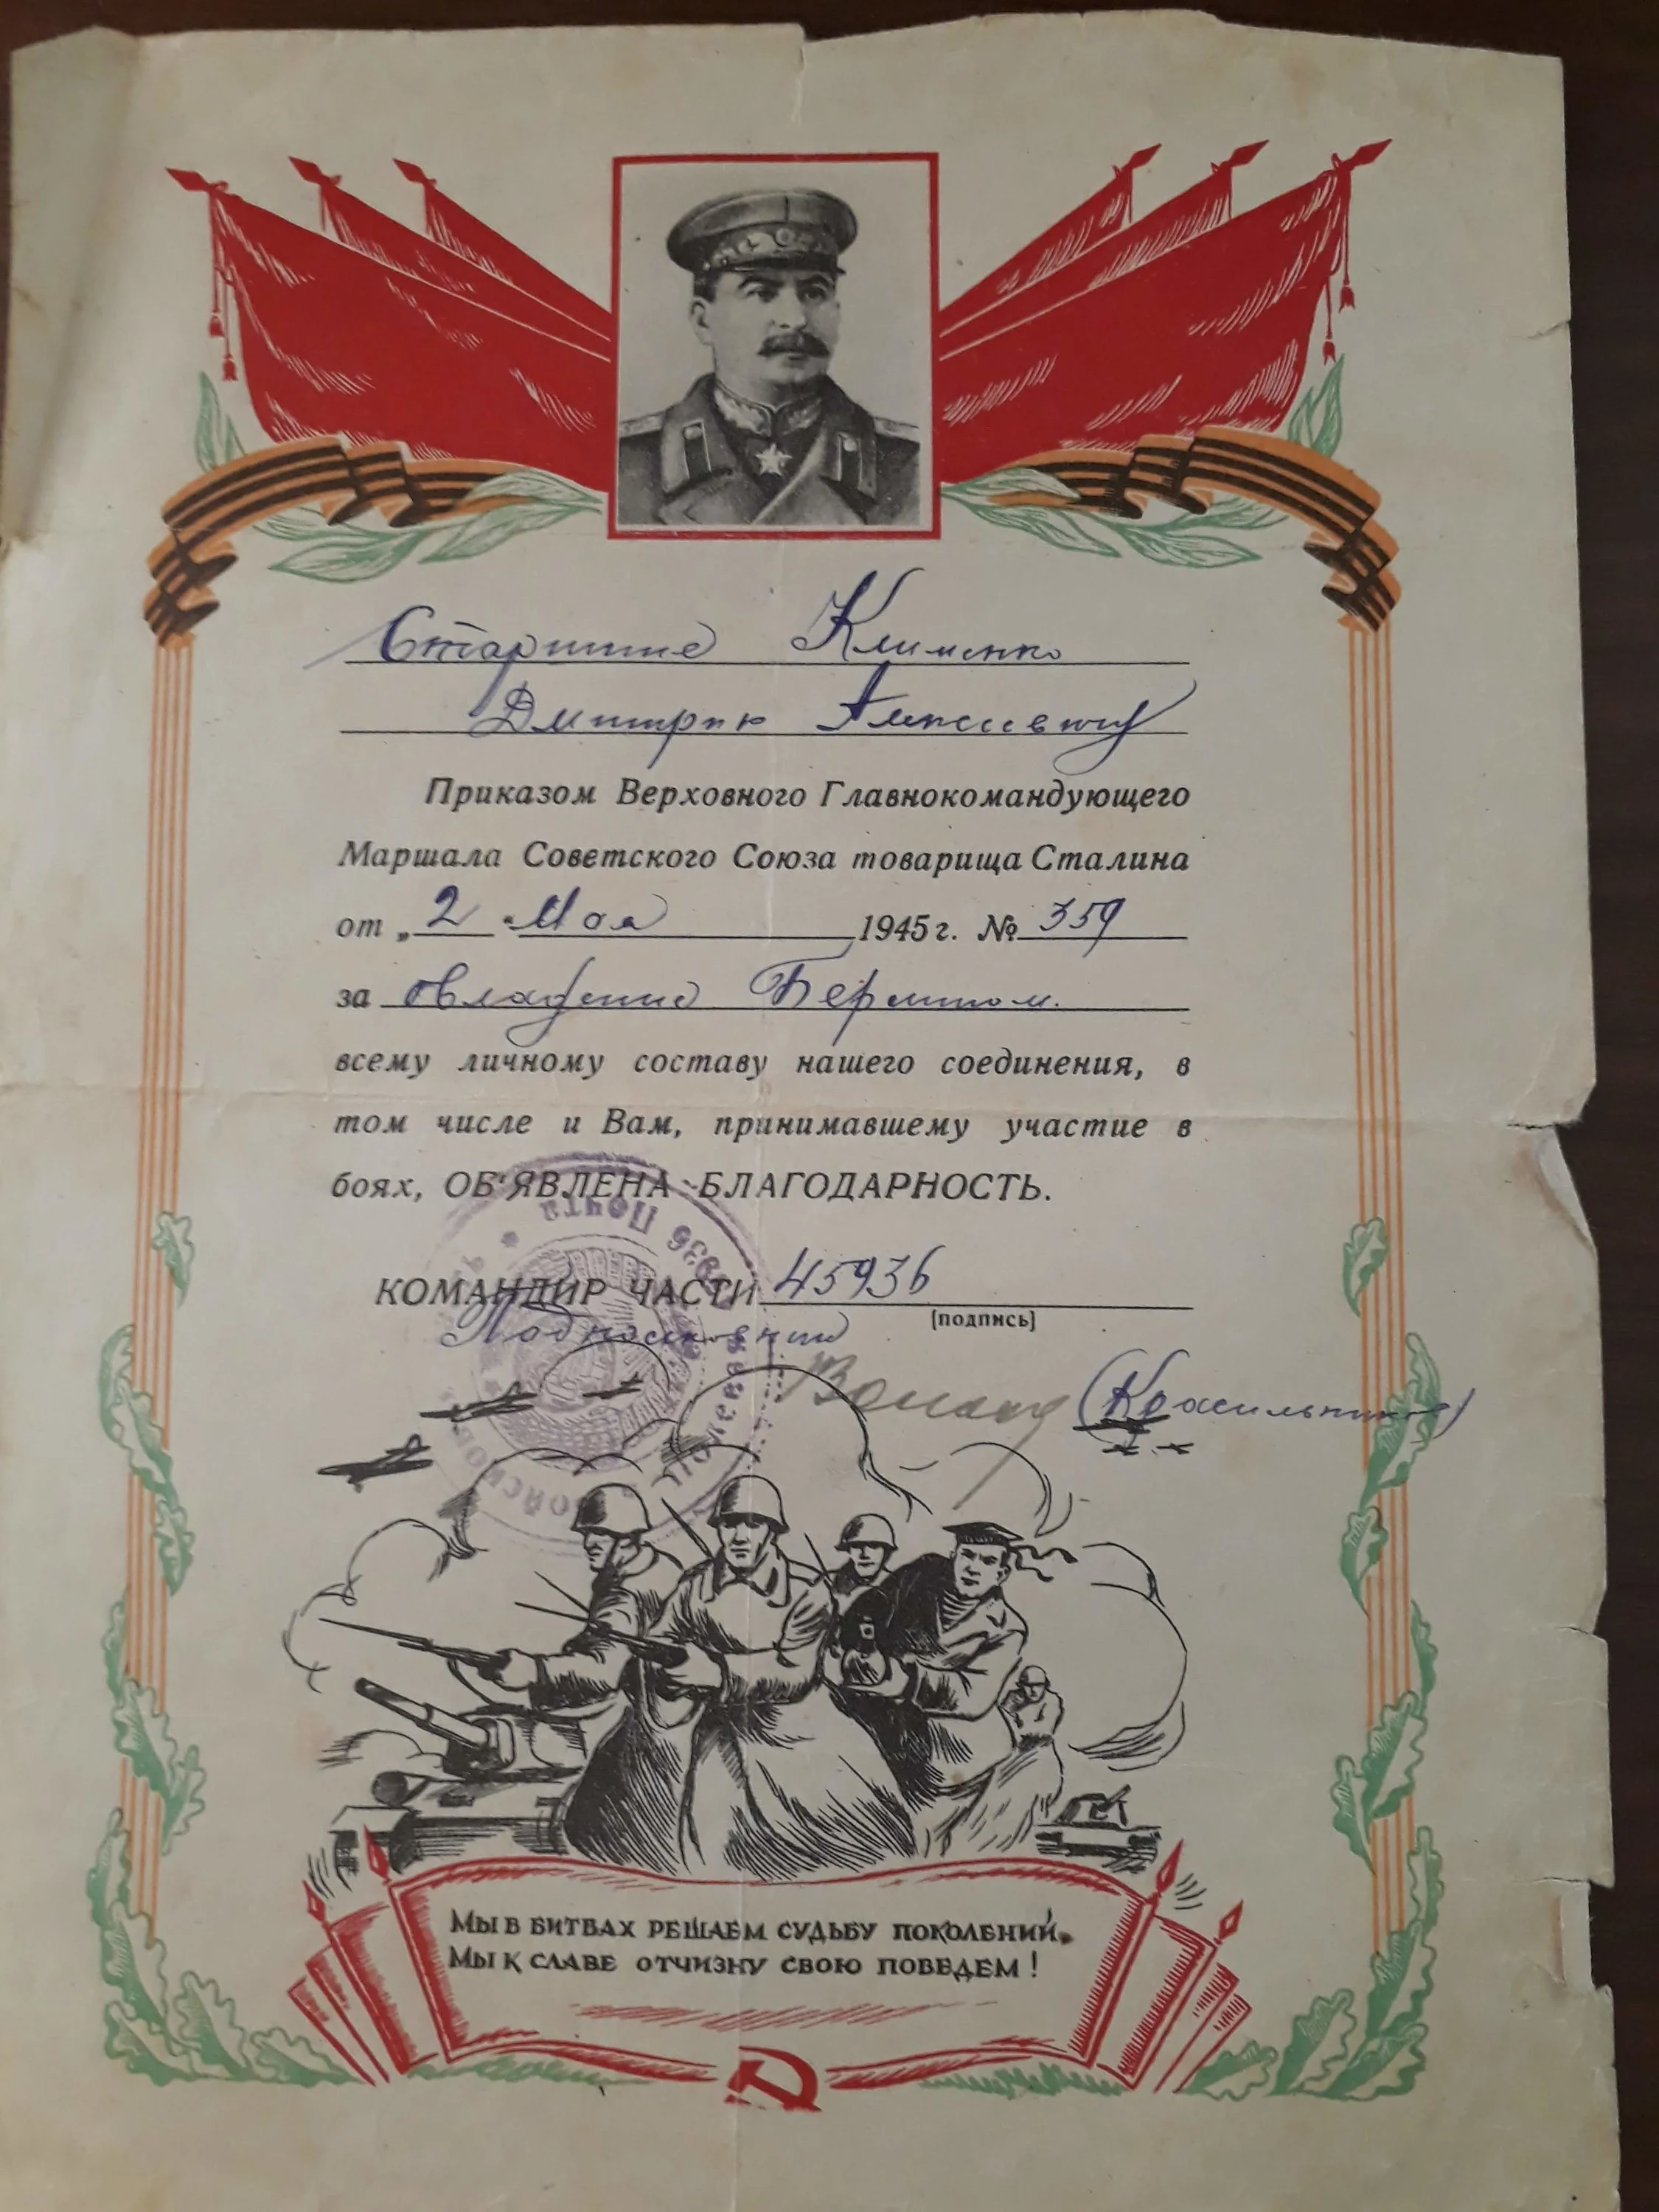 Старшине Клименко
Дмитрию Алексеевичу
Приказом Верховного Главнокомандующего
Маршала Советского Союза товарища Сталина
от „2 Мая 1945 г. № 359
за овладение Берлином.
всему личному составу нашего соединения, в
том числе и Вам, принимавшему участие в
боях, ОБ'ЯВЛЕНА БЛАГОДАРНОСТЬ.
КОМАНДИР ЧАСТИ 45936
(подпись)
Подполковник
(Красильников)
Полевая Почта 45936
МЫ В БИТВАХ РЕШАЕМ СУДЬБУ ПОКОЛЕНИЙ,
МЫ К СЛАВЕ ОТЧИЗНУ СВОЮ ПОВЕДЕМ!